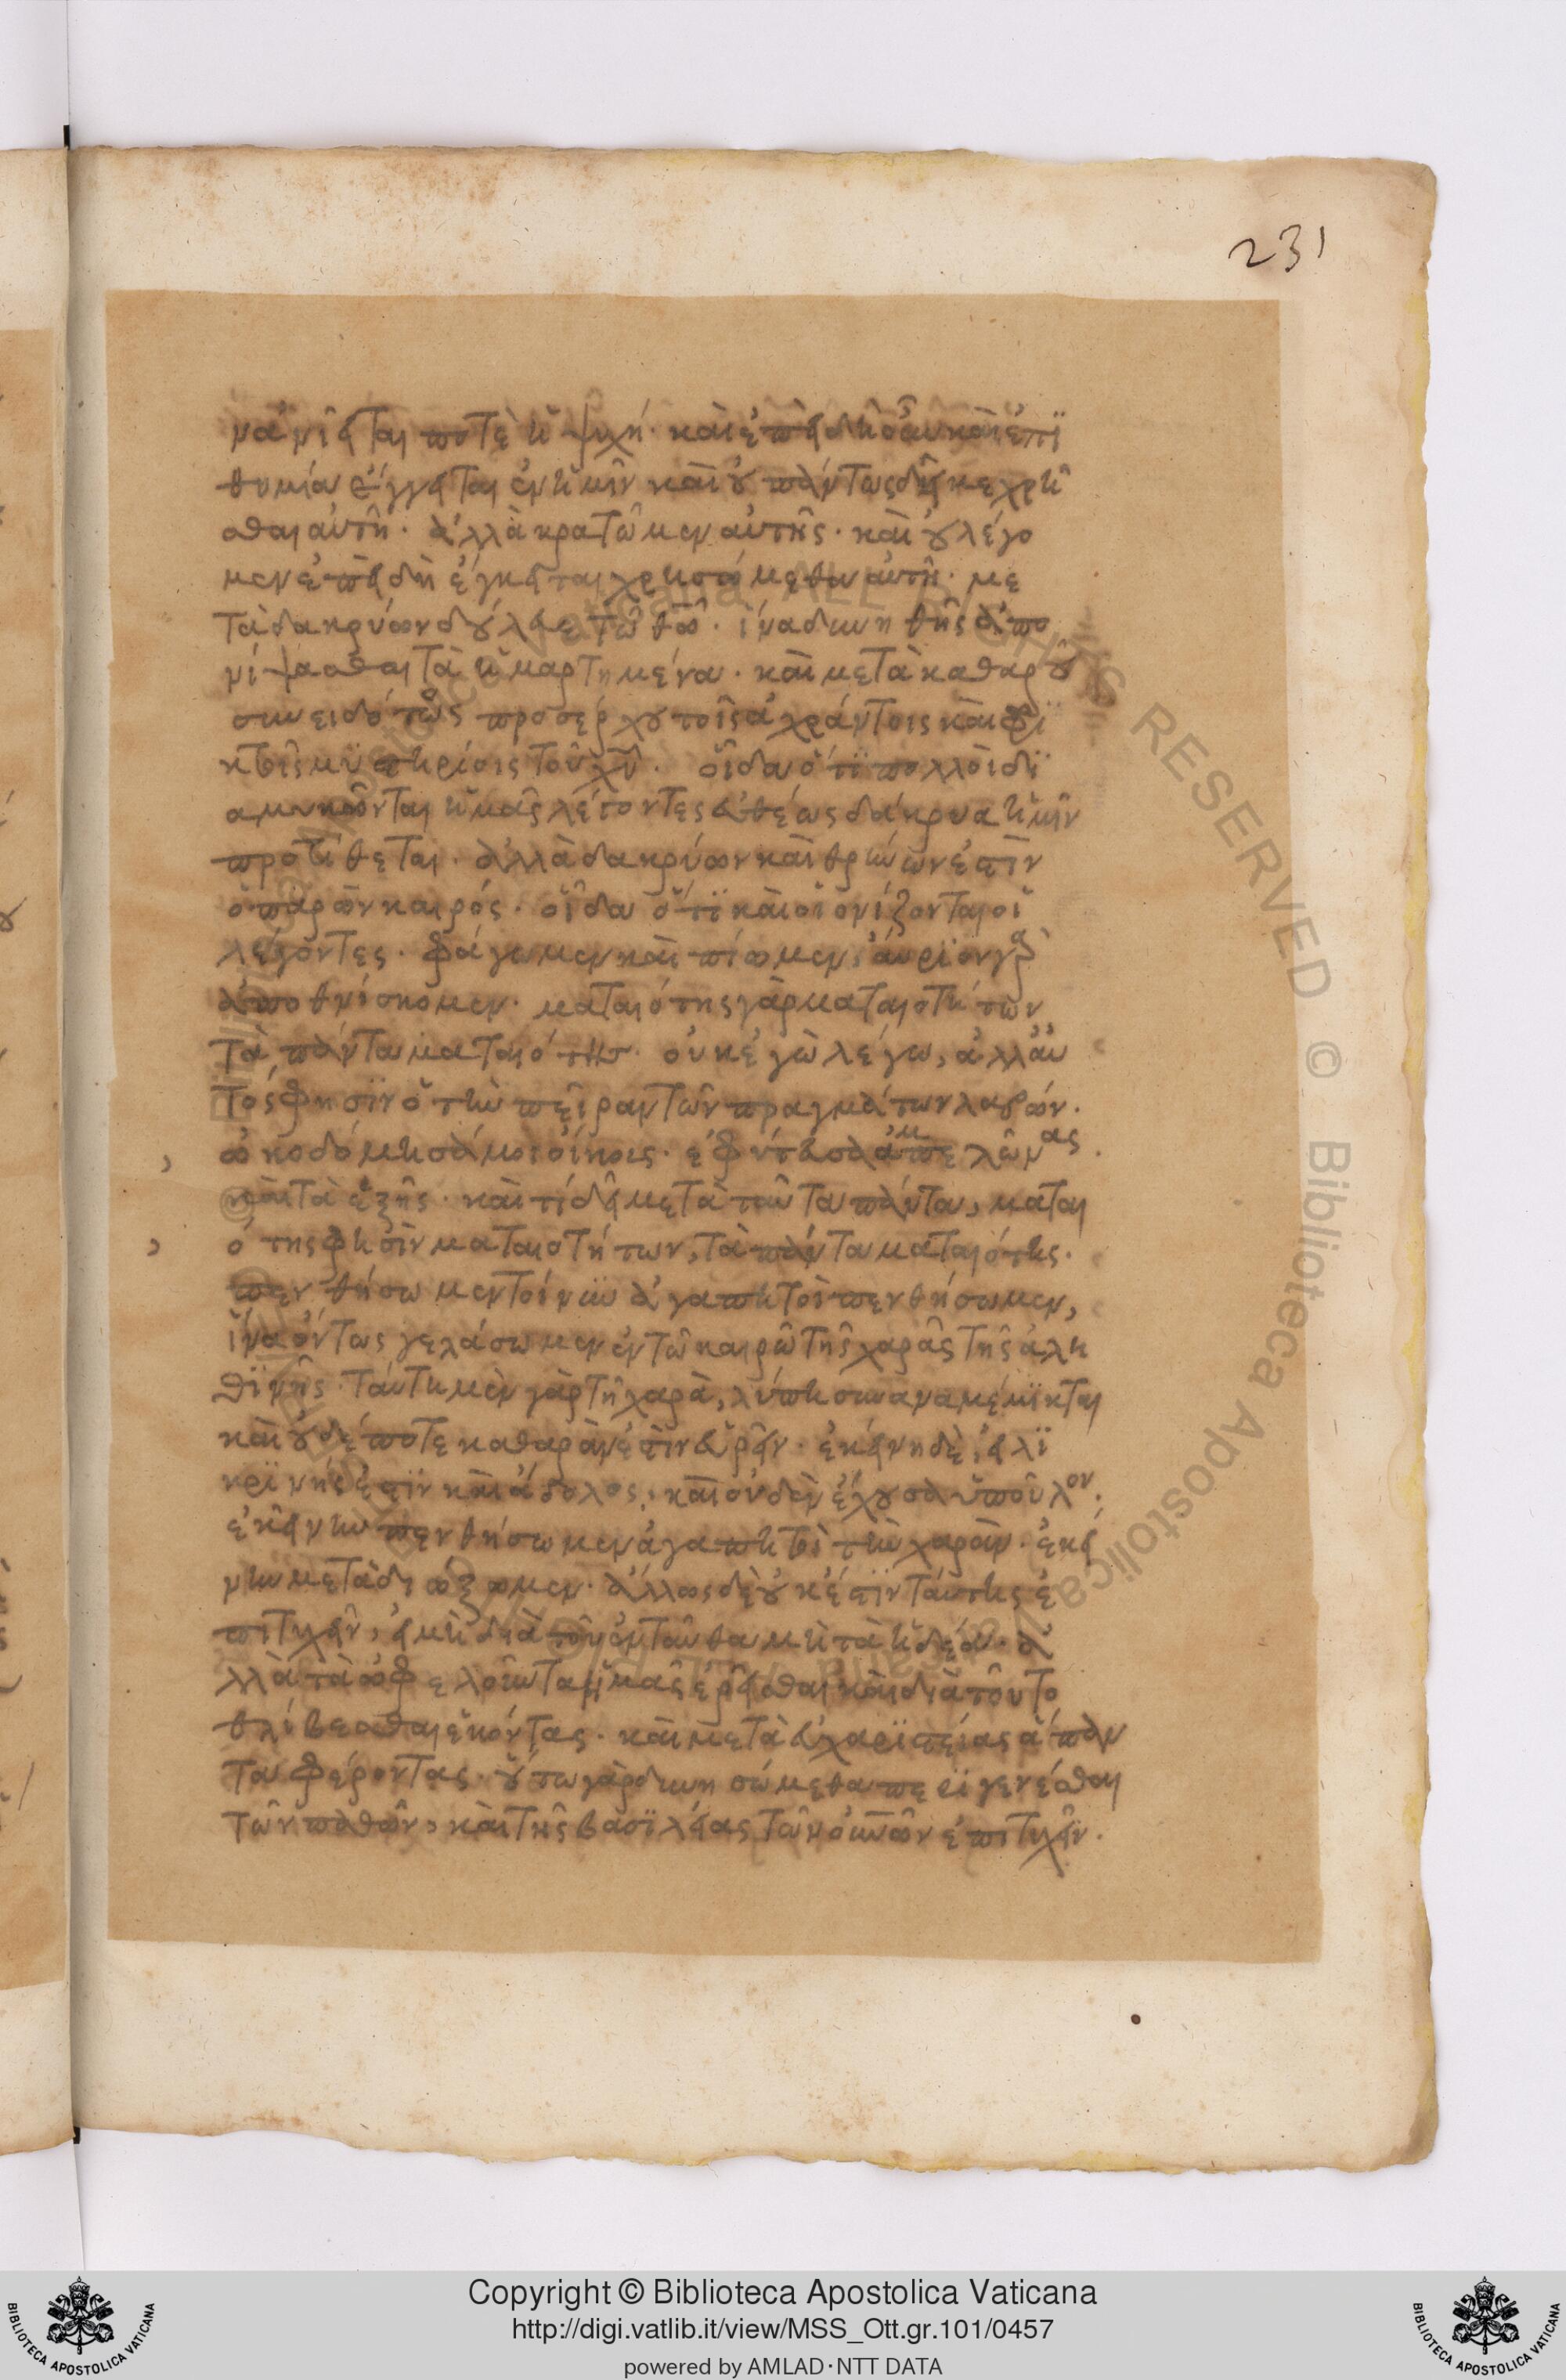 231
να γίνεται ποτὲ ἡ ψυχή. καὶ ἐπειδὴ οὖν καὶ ἐπι
θυμία ἔγγειται ἐν ἡμῖν καὶ οὐ πάντως δεῖ κεχρῆ
σθαι αὐτῆ. ἀλλὰ κρατῶμεν αὐτῆς. καὶ οὐ λέγο
μεν ἐπειδὴ ἔγκειται χρησώμεθα αὐτῆ. με
τὰ δακρύων δούλευε τῶ θω. ἵνα δυνηθῆς ἀπο
νίψασθαι τὰ ἡμαρτημένα. καὶ μετὰ καθαροῦ
συνειδότως προσέρχου τοῖς ἀχράντοις καὶ φρι
κτοῖς μυστηρίοις τοῦ χυ. οἶδα ὅτι πολλοὶ δι
αμωκῶνται ἡμᾶς λέγοντες εὐθέως δάκρυα ἡμῖν
προτίθεται. ἀλλὰ δακρύων καὶ θρήνων ἐστὶν
ὁ παρὼν καιρός. οἶδα ὅτι καὶ οἰονίζονται οἱ
λέγοντες. φάγωμεν καὶ πίωμεν, αὔριον γὰρ
ἀποθνίσκομεν. ματαιότης γὰρ ματαιοτήτων
τὰ πάντα ματαιότησ. οὐκ ἐγὼ λέγω, ἀλλ' αὐ
τός φησὶν ὁ τὴν πεῖραν τῶν πραγμάτων λαβών.
ὠκοδόμησά μοι οἴκους. ἐφύτευσα ἀμπελῶνας.
καὶ τὰ ἑξῆς. καὶ τί δεῖ μετὰ ταῦτα πάντα, μαται
ότης φησὶν ματαιοτήτων, τὰ πάντα ματαιότης.
πενθήσωμεν τοίνυν ἀγαπητοὶ πενθήσωμεν,
ἵνα ὄντως γελάσωμεν ἐν τῶ καιρῶ τῆς χαρᾶς τῆς ἀλη
θινῆς. ταύτη μὲν γὰρ τῆ χαρὰ, λύπη συναναμέμικται
καὶ οὐδέποτε καθαρὰν ἐστὶν εὑρεῖν. ἐκείνη δὲ, εἰλι
κρινής ἐστὶν καὶ ἄδολος, καὶ οὐδὲν ἔχουσα ὕπουλον.
ἐκείνην πενθήσωμεν ἀγαπητοὶ τὴν χαρὰν. ἐκεί
νην μεταδιώξωμεν. ἄλλως δὲ οὐκ ἔστιν ταύτης ἐ
πιτυχεῖν, εἰ μὴ διὰ τοῦ ἐνταῦθα μὴ τὰ ἡδέα. ἀ
λλὰ τὰ ὠφελοῦντα ἡμᾶς ἑρεῖσθαι καὶ διὰ τοῦτο
θλίβεσθαι ἑκόντας. καὶ μετὰ εὐχαριστίας ἅπαν
τα φέροντας. οὕτω γὰρ δυνησώμεθα περιγενέσθαι
τῶν παθῶν, καὶ τῆς βασιλείας τῶν οὐνῶν ἐπιτυχεῖν.
Copyright © Biblioteca Apostolica Vaticana
http://digi.vatlib.it/view/MSS_Ott.gr.101/0457
powered by AMLAD·NTT DATA
BIBLIOTECA APOSTOLICA VATICANA
BIBLIOTECA APOSTOLICA VATICANA